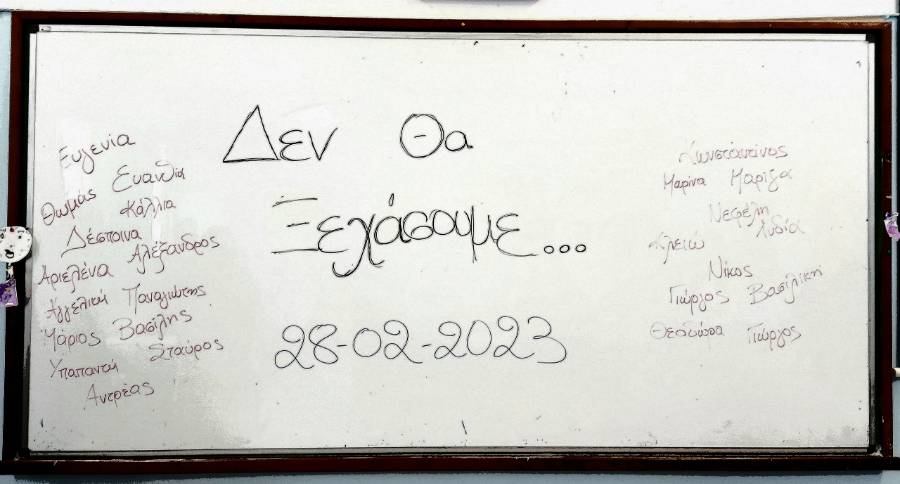 Δεν Θα
Ξεχάσουμε...
28-02-2023
Ευγενία
Θωμάς Ευανθία
Κάλλια
Δέσποινα
Αριελένα Αλέξανδρος
Αγγελική Παναγιώτης
Μάριος Βασίλης
Υπαπαντή Σταύρος
Αντρέας
Κωνσταντίνος
Μαρίνα Μαρίζα
Νεφέλη
Κλειώ Λυδία
Νίκος
Γιώργος Βασιλική
Θεοδώρα Γιώργος